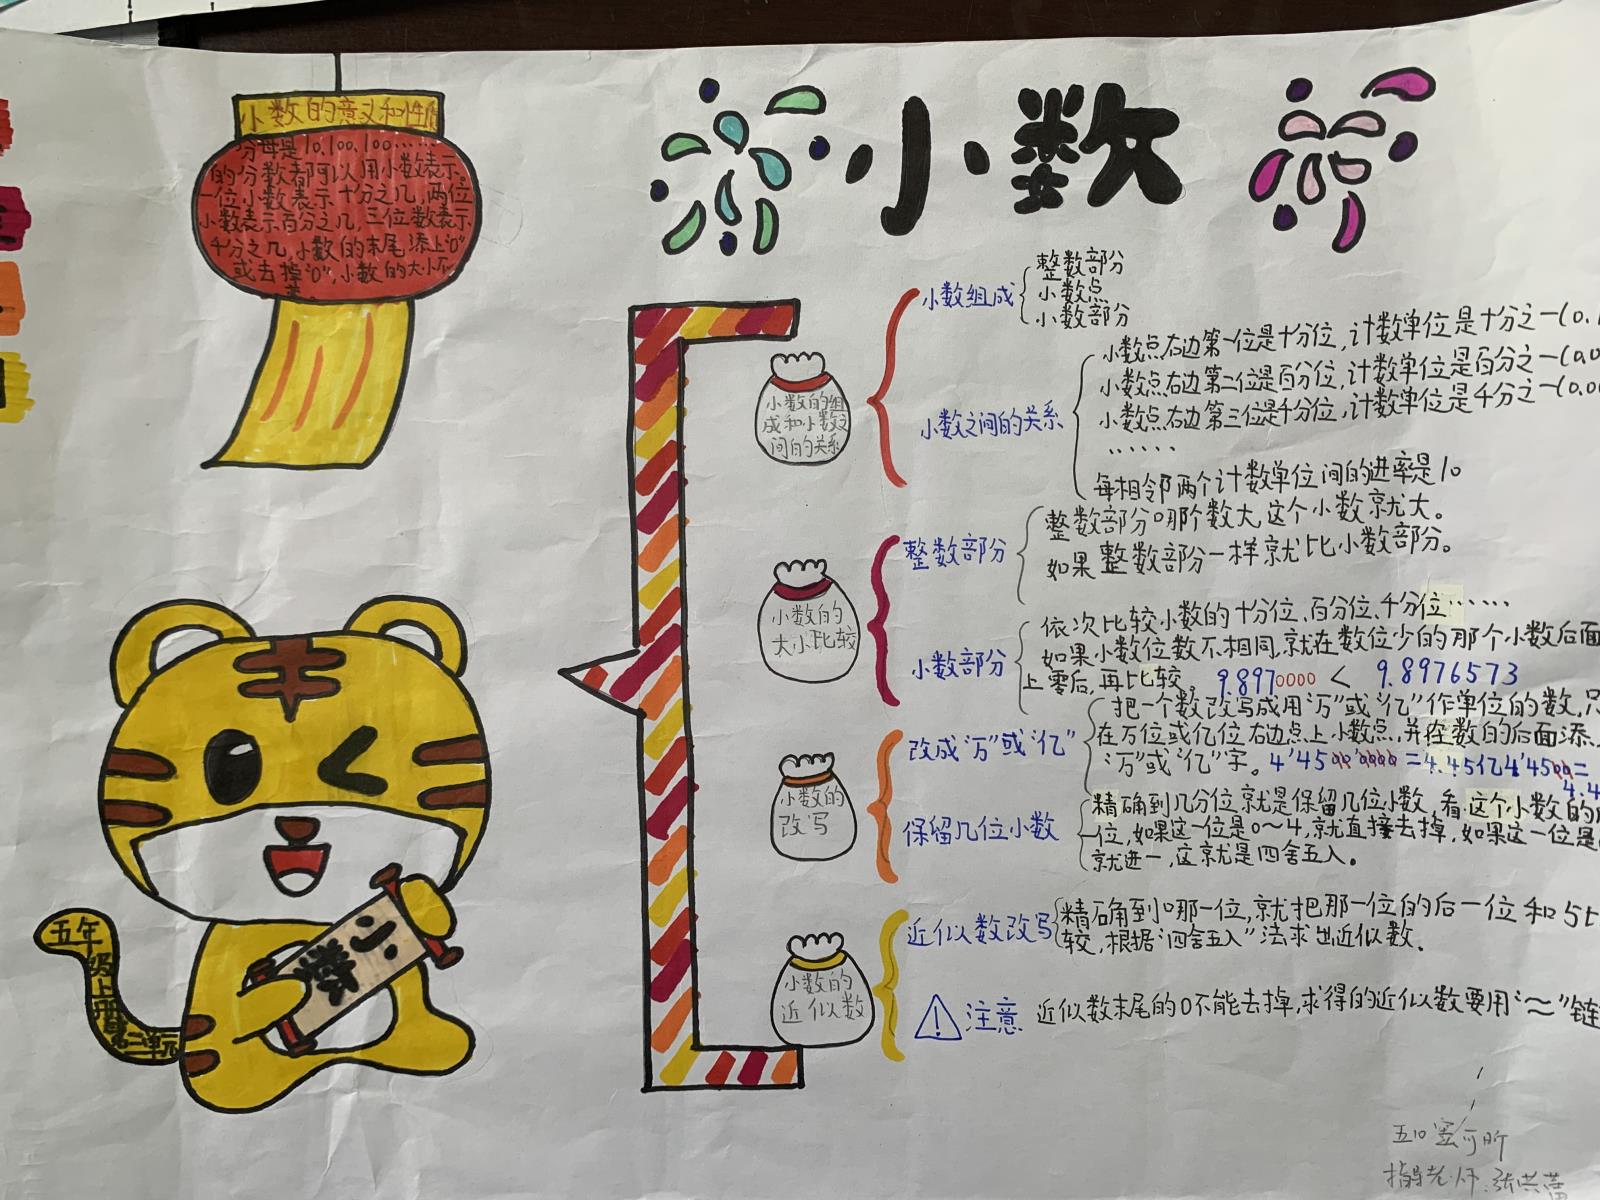 小数的意义和性质
分母是10.100.100……
的分数都可以用小数表示、
一位小数表示十分之几,两位
小数表示百分之几,三位数表示
千分之几,小数的末尾添上“0”
或去掉“0”,小数的大小不
小数
小数的组
成和小数之
间的关系
小数组成
整数部分
小数点
小数部分
小数之间的关系
小数点右边第一位是十分位,计数单位是十分之一(0.1
小数点右边第二位是百分位,计数单位是百分之一(0.0
小数点右边第三位是千分位,计数单位是千分之一(0.00
……
每相邻两个计数单位间的进率是10
小数的
大小比较
整数部分
整数部分哪个数大,这个小数就大。
如果整数部分一样就比小数部分。
小数部分
依次比较小数的十分位、百分位、千分位……
如果小数位数不相同,就在数位少的那个小数后面
上零后,再比较。 9.8970000 < 9.8976573
小数的
改写
改成“万”或“亿”
把一个数改写成用“万”或“亿”作单位的数,只
在万位或亿位右边点上小数点,并在数的后面添
“万”或“亿”字。4'4500'0000=4.45亿4'4500=
4.4
保留几位小数
精确到几分位,就是保留几位小数,看这个小数的
位,如果这一位是0~4,就直接去掉,如果这一位是
就进一,这就是四舍五入。
小数的
近似数
近似数改写
精确到哪一位,就把那一位的后一位和5比
较,根据“四舍五入”法求出近似数.
注意
近似数末尾的0不能去掉,求得的近似数要用“~”链
小数
五年级上册第二单元
指导老师:张